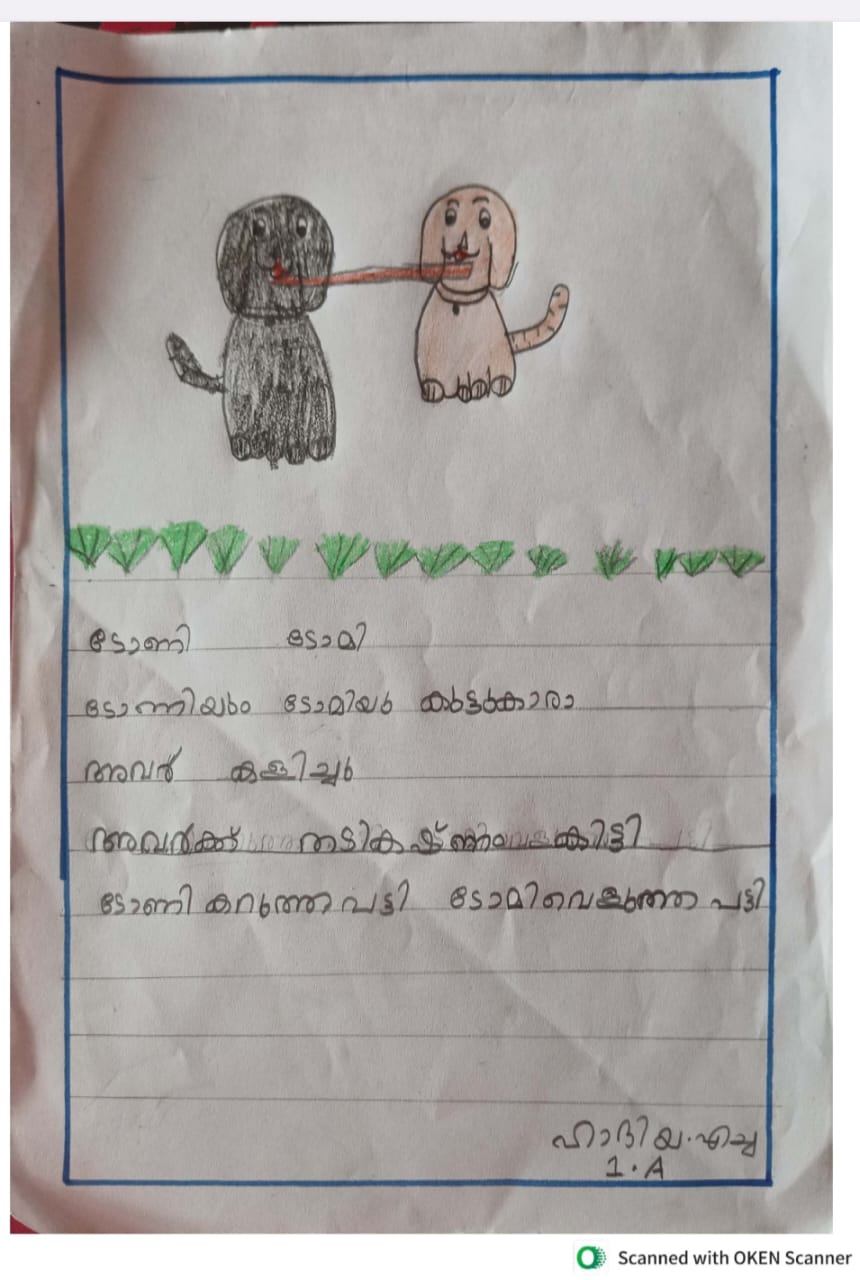 ടോണി ടോമി
ടോണിയും ടോമിയു കൂട്ടുകാരാ
അവർ കളിച്ചു
അവർക്ക് തടികഷ്ണം കിട്ടി
ടോണി കറുത്ത പട്ടി ടോമി വെളുത്ത പട്ടി
ഹാദിയ.എച്ച
1.A
Scanned with OKEN Scanner